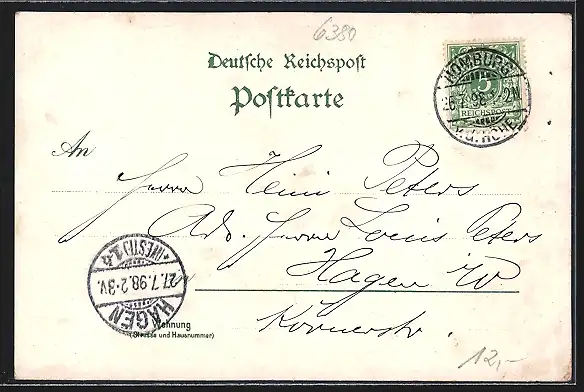 6380
Deutsche Reichspost
Postkarte
5
REICHSPOST
HOMBURG
26.7.98 1-2N
v.d.HÖHE
An
Herrn Heini Peters
Adr. Herrn Louis Peters
Hagen i/W
in
Körnerstr.
HAGEN
27.7.98.2-3V.
(WESTF) 1.h
Wohnung
(Strasse und Hausnummer)
12,-